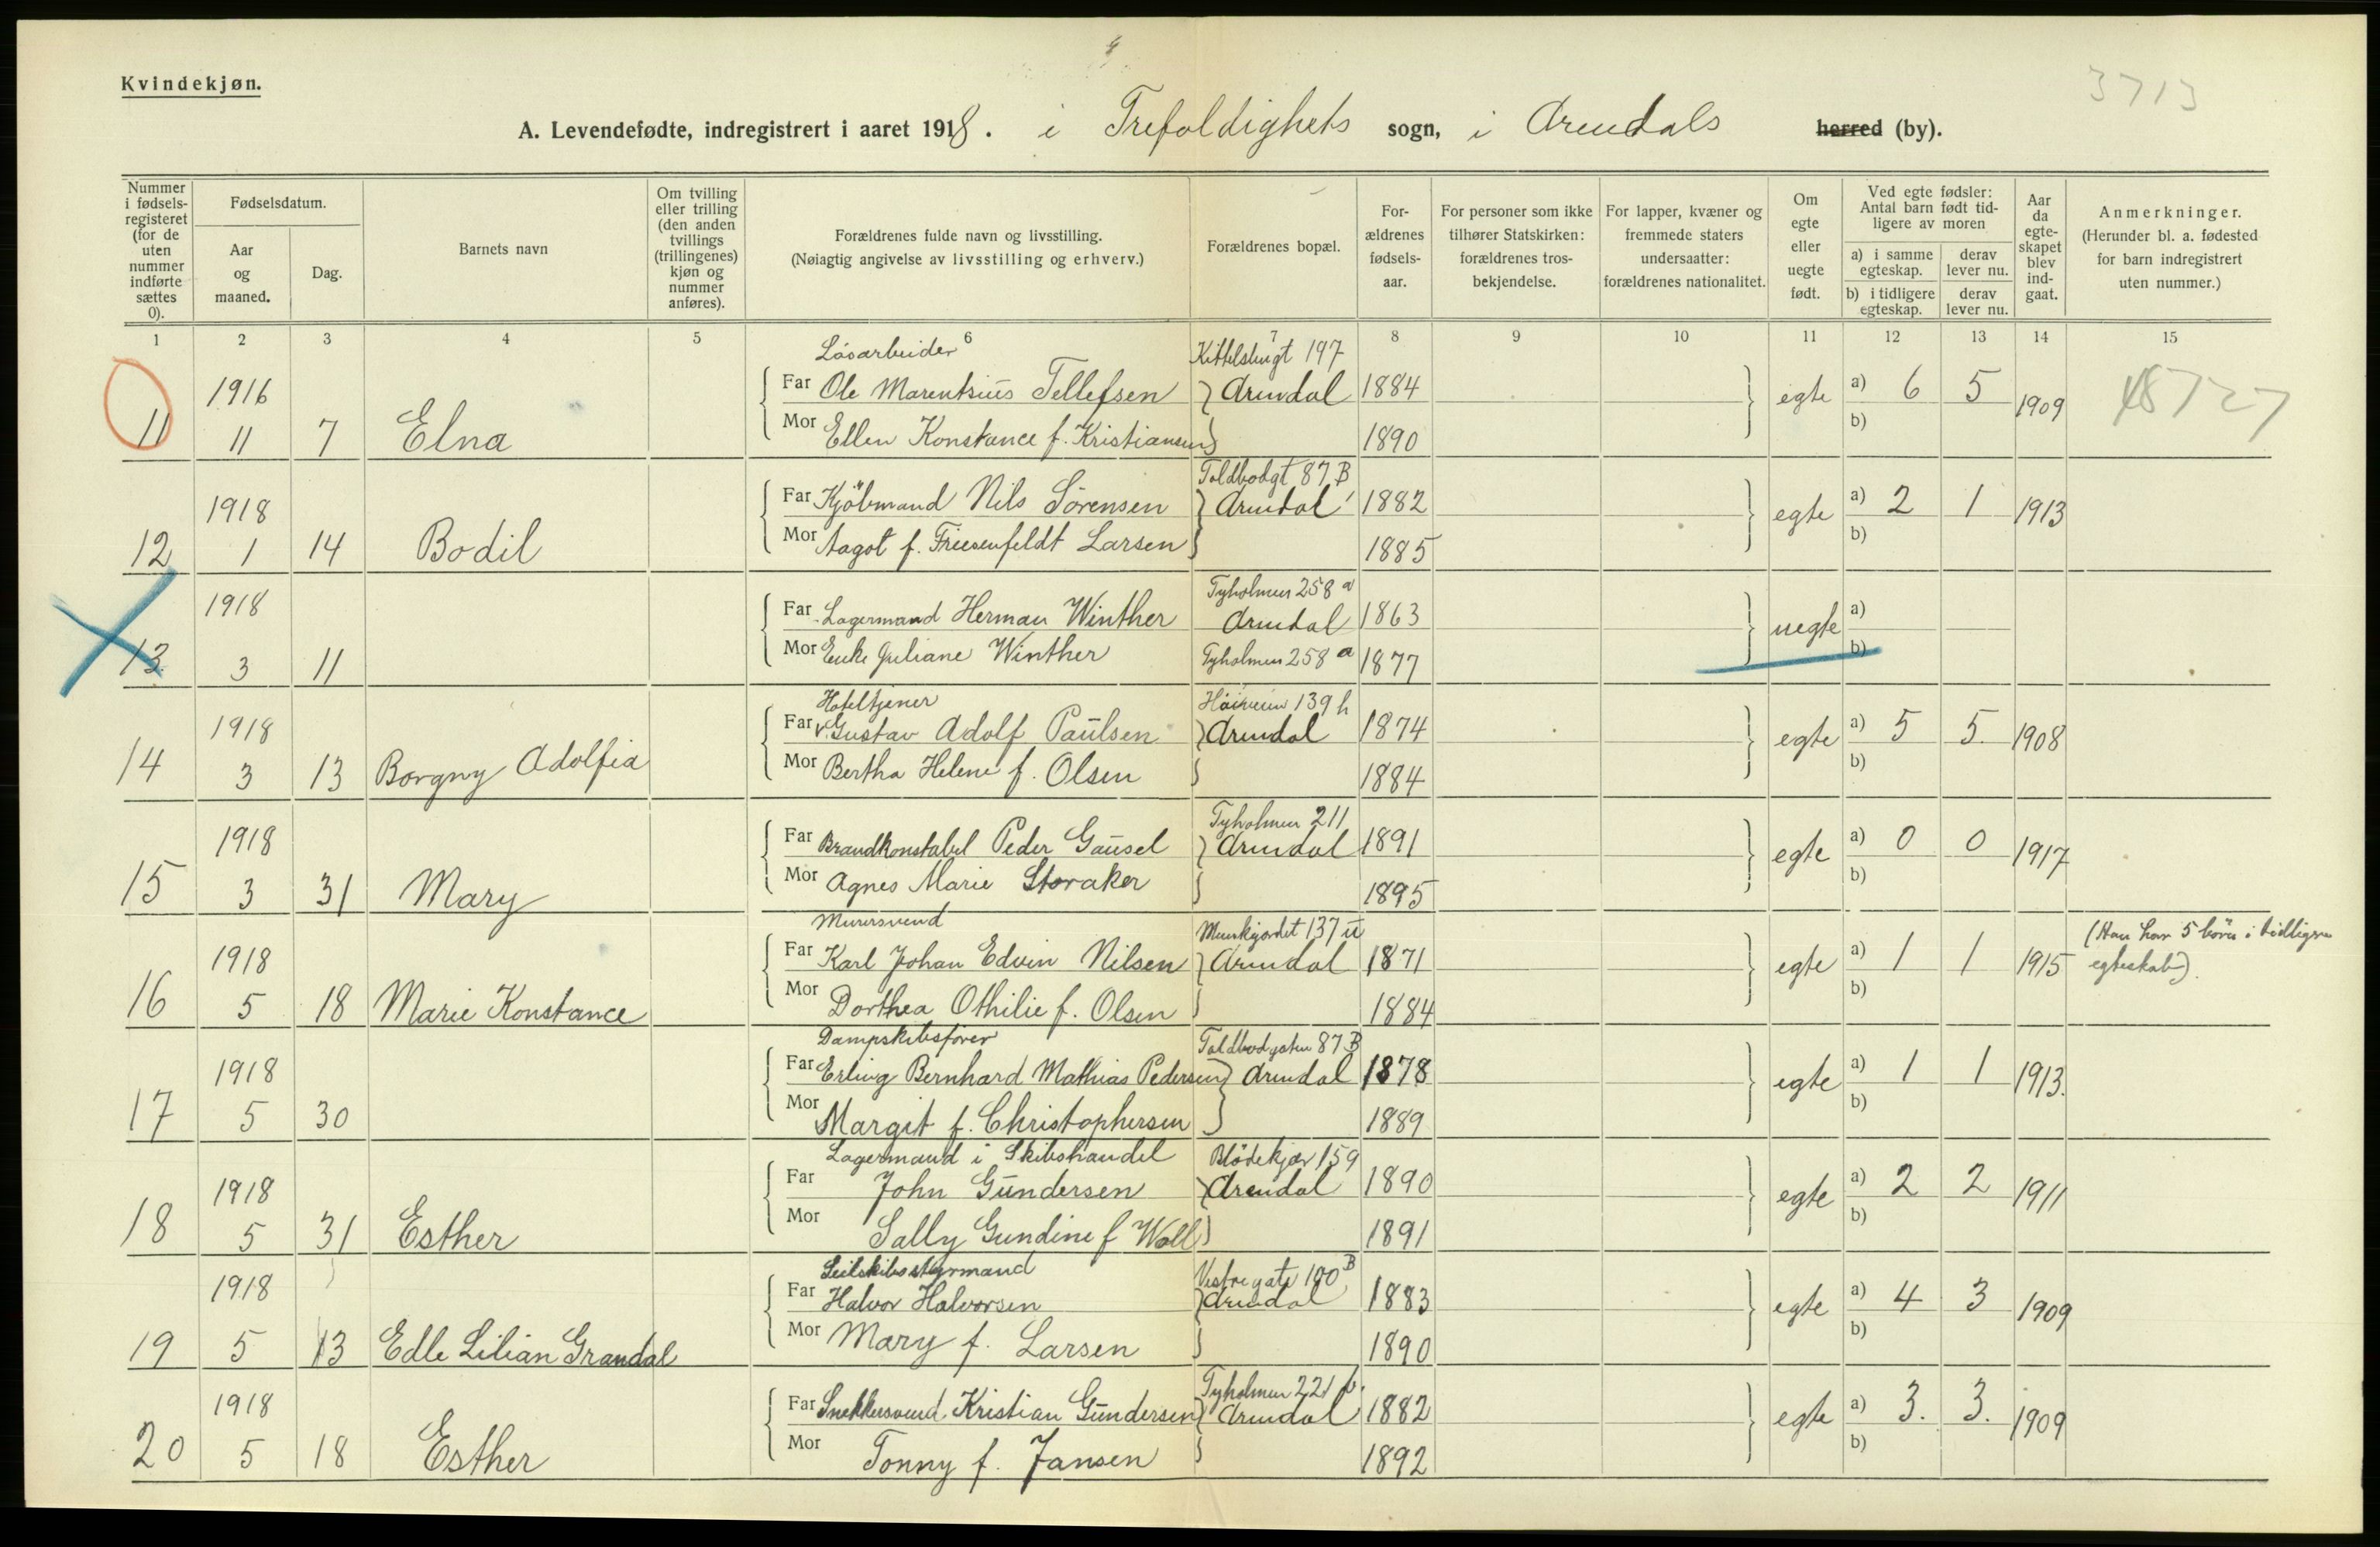 3713
Kvindekjøn.
A. Levendefødte, indregistrert i aaret 1918. i Trefoldighets sogn, i Arendals herred (by).
Nummer i fødsels-registeret (for de uten nummer indførte sættes 0).
Fødselsdatum.
Aar og maaned.
Dag.
Barnets navn
Om tvilling eller trilling (den anden tvillings (trillingenes) kjøn og nummer anføres).
Forældrenes fulde navn og livsstilling.
(Nøiagtig angivelse av livsstilling og erhverv.)
Forældrenes bopæl.
For-ældrenes fødsels-aar.
For personer som ikke tilhører Statskirken: forældrenes tros-bekjendelse.
For lapper, kvæner og fremmede staters undersaatter: forældrenes nationalitet.
Om egte eller uegte født.
Ved egte fødsler: Antal barn født tid-ligere av moren
a) i samme egteskap. derav lever nu.
b) i tidligere egteskap. derav lever nu.
Aar da egte-skapet blev ind-gaat.
Anmerkninger.
(Herunder bl. a. fødested for barn indregistrert uten nummer.)
1 2 3 4 5 6 7 8 9 10 11 12 13 14 15
Løsarbeider 197
1916 Far Ole Marentsius Tellefsen Arendal 1884 egte a) 6 5 1909 48727
11 11 7 Elna Mor Ellen Konstance f. Kristiansen 1890 b)
Toldbodgt 87 B
1918 Far Kjöbmand Nils Sörensen Arendal 1882 egte a) 2 1 1913
12 1 14 Bodil Mor Aagot f. Friesenfeldt Larsen 1885 b)
Tyholmen 258 a
1918 Far Lagermand Herman Winther Arendal 1863 uegte a)
13 3 11 Mor Enke Juliane Winther Tyholmen 258 a 1877 b)
Hoteltjener 139 h
1918 Far Gustav Adolf Paulsen Arendal 1874 egte a) 5 5. 1908
14 3 13 Borgny Adolfia Mor Bertha Helene f. Olsen 1884 b)
Tyholmen 211
1918 Far Brandkonstabel Peder Gausel Arendal 1891 egte a) 0 0 1917
15 3 31 Mary Mor Agnes Marie Storaker 1895 b)
Murersvend Munkgjordet 137 u (Han har 5 börn i tidligere
1918 Far Karl Johan Edvin Nilsen Arendal 1871 egte a) 1 1 1915 egteskab).
16 5 18 Marie Konstance Mor Dorthea Othilie f. Olsen 1884 b)
Dampskibsfører Toldbodgaten 87 B
1918 Far Erling Bernhard Mathias Pedersen Arendal 1878 egte a) 1 1 1913.
17 5 30 Mor Margit f. Christophersen 1889 b)
Lagermand i Skibshandel Blödekjær 159
1918 Far John Gundersen Arendal 1890 egte a) 2 2 1911
18 5 31 Esther Mor Sally Gundine f Woll 1891 b)
Seilskibsstyrmand Vestregate 100 B
1918 Far Halvor Halvorsen Arendal 1883 egte a) 4 3 1909
19 5 13 Edle Lilian Grandal Mor Mary f. Larsen 1890 b)
Tyholmen 221 b.
1918 Far Snekkersvend Kristian Gundersen Arendal 1882 egte a) 3. 3. 1909
20 5 18 Esther Mor Tonny f. Jansen 1892 b)